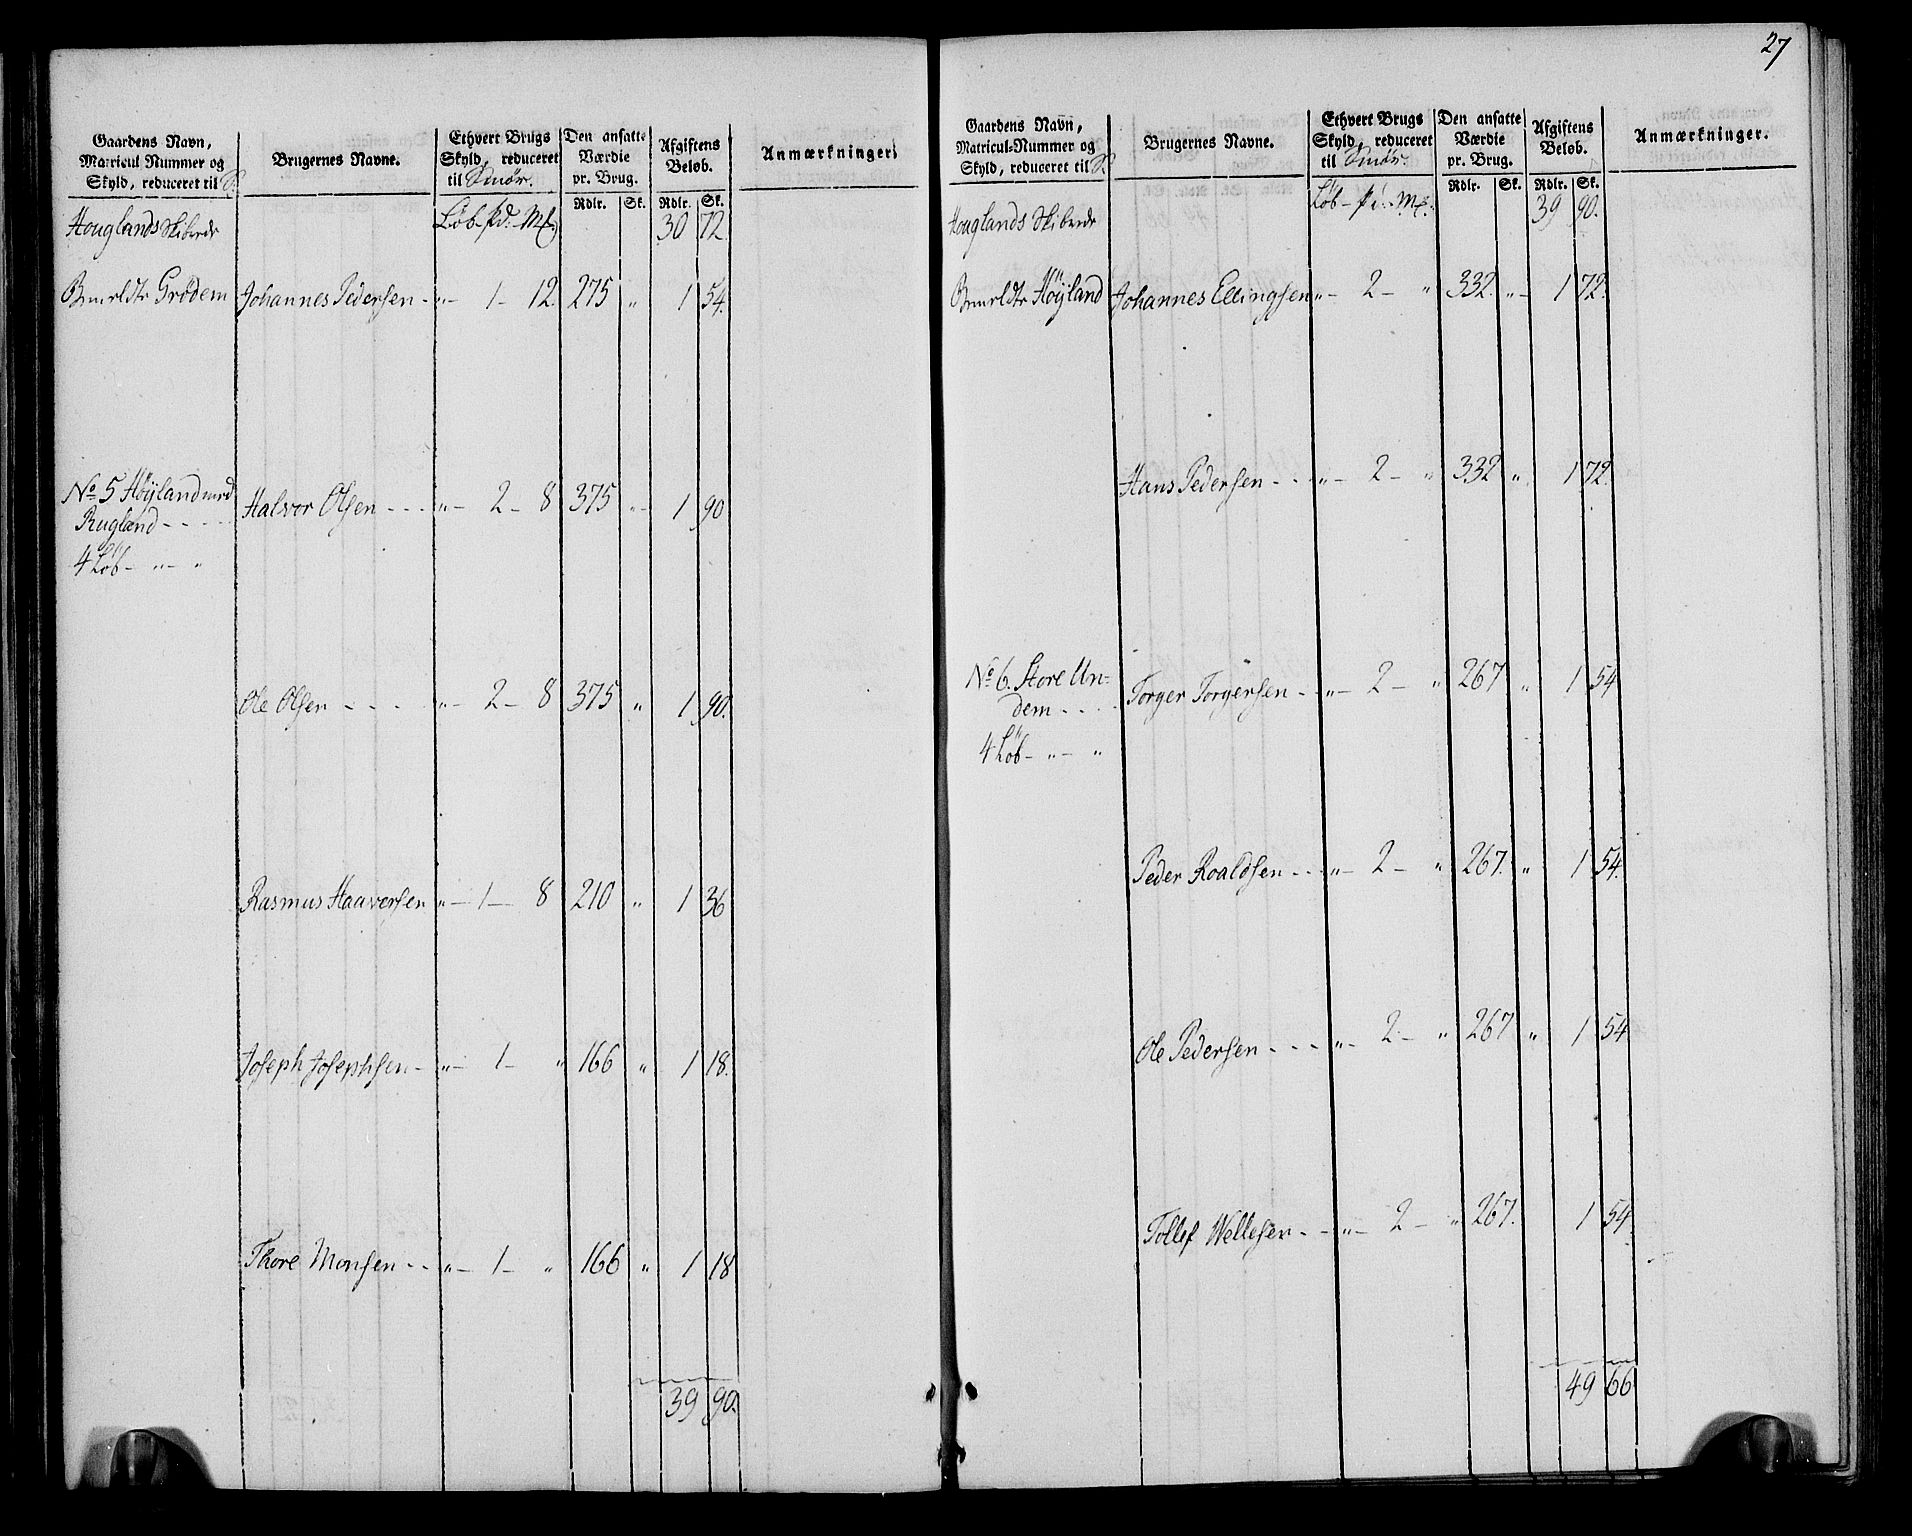 Gaardens Navn,
Matricul Nummer og
Skyld, reduceret til S.
Brugernes Navne.
Ethvert Brugs
Skyld, reduceret
til Smör.
Den ansatte
Værdie
pr. Brug.
Rdlr. Sk.
Afgiftens
Beløb.
Rdlr. Sk.
Anmærkninger.
Houglands Skibrede Löb - pd. - Mk 30 72.
Grödem Johannes Pedersen - „ - 1 - 12. 275 „ 1 54.
No. 5 Höyland med
Rugland - - - - Halvor Olsen - - - „ - 2 - 8 375 „ 1 90
4 Löb - „ - „
Ole Olsen - - - - „ - 2 - 8 375 „ 1 90.
Rasmus Haaversen „ - 1 - 8 210 „ 1 36
Joseph Josephsen - „ - 1 - „ 166 „ 1 18.
Thore Monsen - - „ - 1 - „ 166 „ 1 18
39 90.
27
Gaardens Navn,
Matricul-Nummer og
Skyld, reduceret til S.
Brugernes Navne.
Ethvert Brugs
Skyld, reduceret
til Smör.
Den ansatte
Værdie
pr. Brug.
Rdlr. Sk.
Afgiftens
Beløb.
Rdlr. Sk.
Anmærkninger.
Houglands Skibrede Löb - pd. - Mk. 39 90.
Höyland Johannes Ellingsen „ - 2 - „ 332. „ - 1 72.
Hans Pedersen - - - „ - 2 - „ 332 „ 1 72.
No. 6. Store Un=
dem - - - - Torger Torgersen - „ - 2 - „ 267 „ 1 54
4 Löb - „ - „
Peder Roaldsen - - „ - 2 - „ 267. „ 1 54.
Ole Pedersen - - - „ - 2 - „ 267 „ 1 54
Tollef Wellesen - - „ - 2 - „ 267. 1 54.
49 66